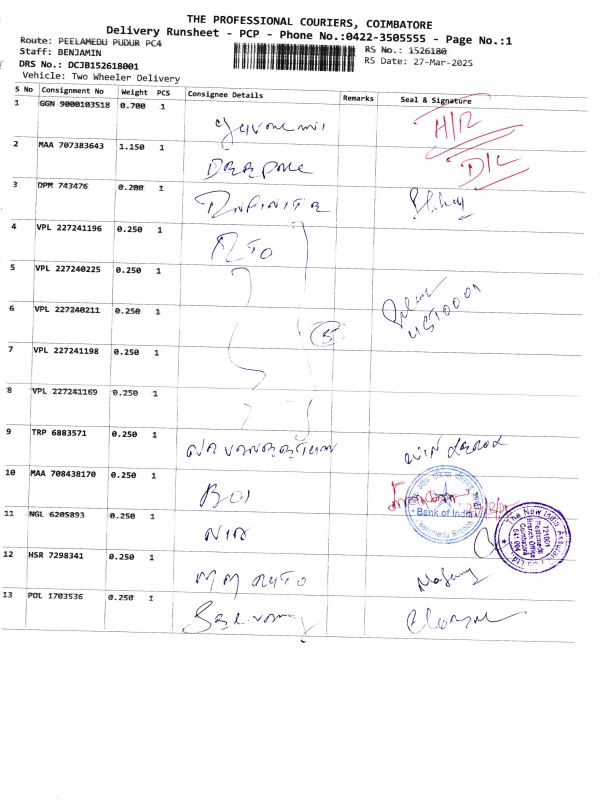 THE PROFESSIONAL COURIERS, COIMBATORE
Delivery Runsheet - PCP - Phone No.:0422-3505555 - Page No.:1
Route: PEELAMEDU PUDUR PC4
RS No.: 1526180
Staff: BENJAMIN
RS Date: 27-Mar-2025
DRS No.: DCJB152618001
Vehicle: Two Wheeler Delivery
S No Consignment No Weight PCS Consignee Details Remarks Seal & Signature
1 GGN 9000103518 0.700 1 H/R
2 MAA 707383643 1.150 1 D/L
3 DPM 743476 0.200 1 INFINITE
4 VPL 227241196 0.250 1 RTO
5 VPL 227240225 0.250 1
6 VPL 227240211 0.250 1 5
7 VPL 227241198 0.250 1
8 VPL 227241169 0.250 1
9 TRP 6883571 0.250 1
10 MAA 708438170 0.250 1 BOI Bank of India
11 NGL 6205893 0.250 1 NIA The New India Assurance
12 HSR 7298341 0.250 1 MM AUTO
13 POL 1703536 0.250 1